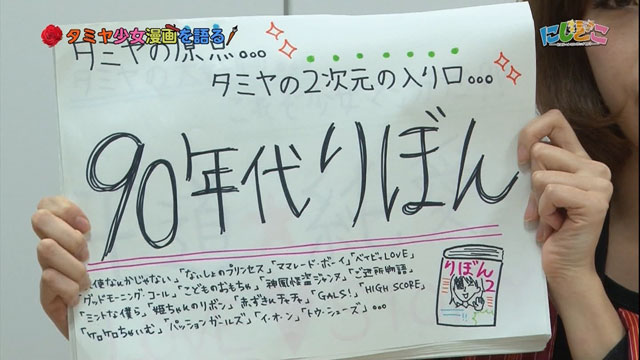 タミヤ少女漫画を語る!
にしどこ
タミヤの原点...
タミヤの2次元の入り口...
90年代りぼん
使なんかじゃない」「ないしょのプリンセス」「ママレード・ボーイ」「ベイビィLOVE」
「グッドモーニング・コール」「こどものおもちゃ」「神風怪盗ジャンヌ」「ご近所物語」
「ミントな僕ら」「姫ちゃんのリボン」「赤ずきんチャチャ」「GALS!」「HIGH SCORE」
「ケロケロちゃいむ」「パッションガールズ」「イ・オ・ン」「トウ・シューズ」...
りぼん
2